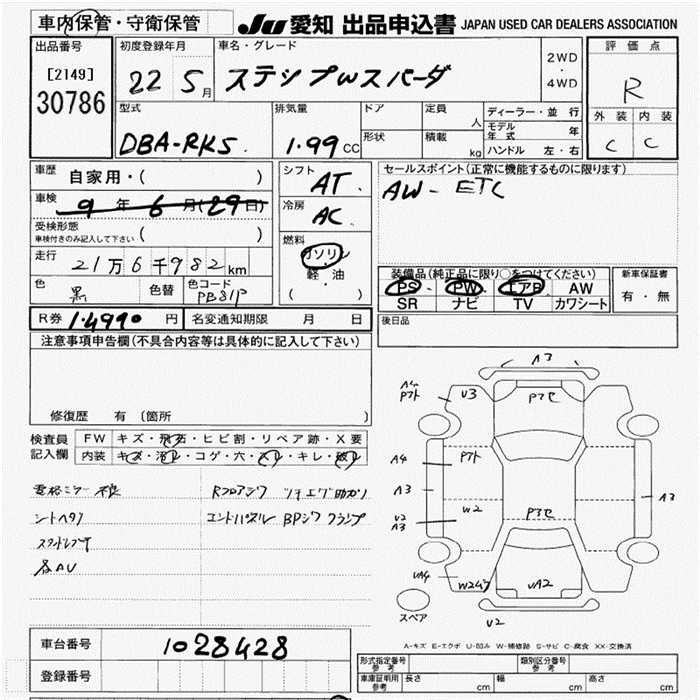 車内保管・守衛保管
JU 愛知 出品申込書 JAPAN USED CAR DEALERS ASSOCIATION
出品番号 初度登録年月 車名・グレード 評価点
[2149] 22 5月 ステップWスパーダ 2WD・4WD R
30786
型式 排気量 ドア 定員 人 ディーラー・並行 外装 内装
モデル年式 年
DBA-RK5. 1.99 CC 形状 積載 kg ハンドル 左・右 C C
車歴 自家用・( ) シフト AT. セールスポイント(正常に機能するものに限ります)
車検 9年6月(29日) 冷房 AC. AW- ETC
受検形態
車検付きのみ記入して下さい ( ) 燃料 ガソリン
軽・油
( )
走行 21万6千982km 装備品(純正品に限り○をつけてください) 新車保証書
色 黒 色替 色コード PB81P PS PW エアB AW 有・無
SR ナビ TV カワシート
R券 1.4990 円 名変通知期限 月 日 後日品
注意事項申告欄(不具合内容等は具体的に記入して下さい)
修復歴 有 (箇所
検査員 FW キズ・飛石・ヒビ割・リペア跡・X要
記入欄 内装 キズ・汚レ・コゲ・穴・スレ・キレ・破レ
A3
U3
A4
A3 A3
U2
A3 W2
UA4
UA2
スペア U2
A-キズ E-エクボ U-凹み W-補修跡 S-サビ C-腐食 XX-交換済
車台番号 1028428
登録番号
形式指定番号 参考 類別区分番号 参考
車庫証明用 参考 長さ cm 幅 cm 高さ cm